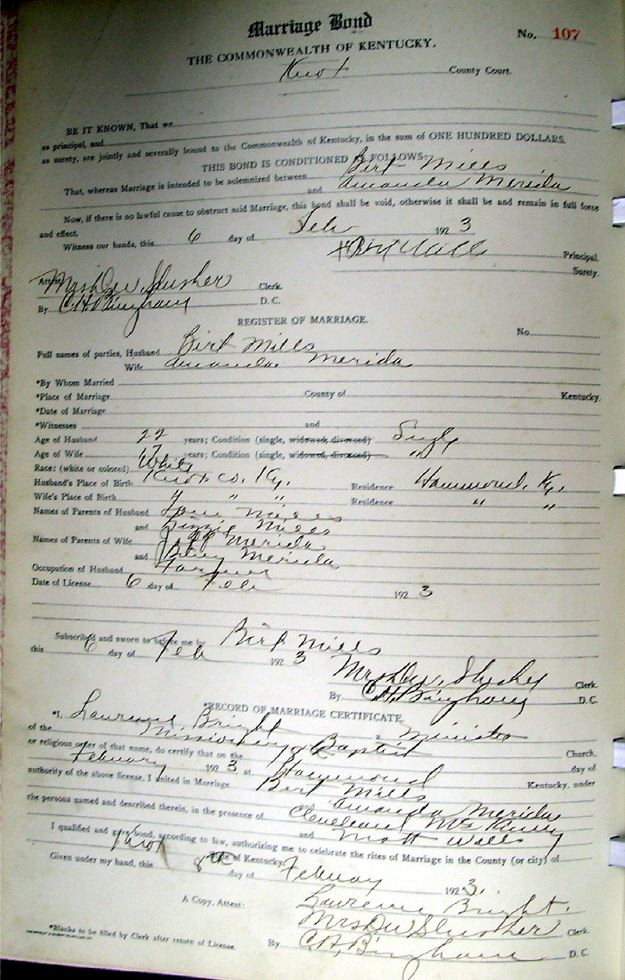 Marriage Bond
No. 107
THE COMMONWEALTH OF KENTUCKY.
Knox County Court.
BE IT KNOWN, That we
as principal, and
as surety, are jointly and severally bound to the Commonwealth of Kentucky, in the sum of ONE HUNDRED DOLLARS.
THIS BOND IS CONDITIONED AS FOLLOWS:
That, whereas Marriage is intended to be solemnized between Birt Mills
and Amanda Merida
Now, if there is no lawful cause to obstruct said Marriage, this bond shall be void, otherwise it shall be and remain in full force
and effect.
Witness our hands, this 6 day of Feb 1923
Principal.
Surety.
Attest: Mrs D W Slusher Clerk.
By C H Bingham D. C.
REGISTER OF MARRIAGE.
No.
Full names of parties, Husband Birt Mills
Wife Amanda Merida
*By Whom Married
*Place of Marriage County of Kentucky.
*Date of Marriage
*Witnesses and
Age of Husband 22 years; Condition (single, widowed, divorced) Single
Age of Wife 17 years; Condition (single, widowed, divorced) "
Race: (white or colored) White
Husband's Place of Birth Knox Co. Ky. Residence Hammond, Ky.
Wife's Place of Birth " " " Residence " "
Names of Parents of Husband Mills
and Lizzie Mills
Names of Parents of Wife Jeff Merida
and Merida
Occupation of Husband Farmer
Date of License 6 day of Feb 1923
Subscribed and sworn to before me by Birt Mills
this 6 day of Feb 1923
Mrs D W Slusher Clerk.
By C H Bingham D. C.
*RECORD OF MARRIAGE CERTIFICATE.
*I, Lawrence Bright a Minister
of the Missionary Baptist Church,
or religious order of that name, do certify that on the day of
February 1923 at Hammond Kentucky, under
authority of the above license, I united in Marriage Bert Mills
and Amanda Merida
the persons named and described therein, in the presence of
and Matt Walls
I qualified and gave bond, according to law, authorizing me to celebrate the rites of Marriage in the County (or city) of
Knox State of Kentucky.
Given under my hand, this 8th day of February 1923.
Lawrence Bright.
A Copy, Attest: Mrs D W Slusher Clerk
By C. H. Bingham D. C.
*Blanks to be filled by Clerk after return of License.